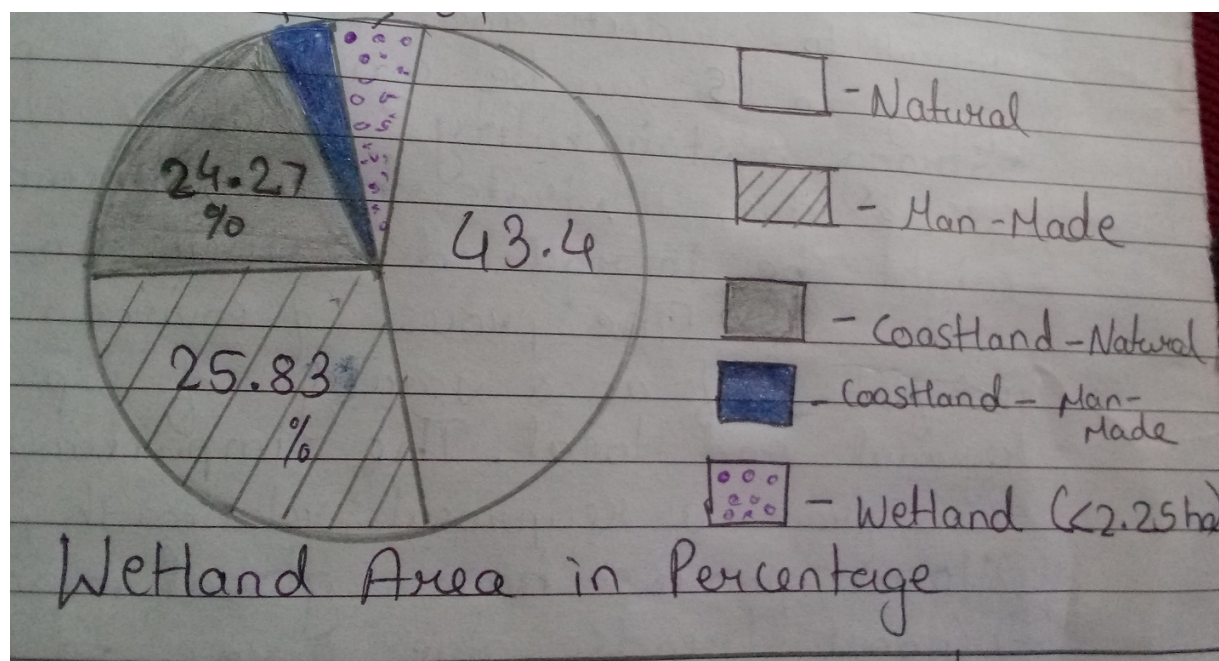 24.27
%
43.4
25.83
%
- Natural
- Man-Made
- Coastland-Natural
- Coastland - Man-
Made
- Wetland (<2.25ha)
Wetland Area in Percentage